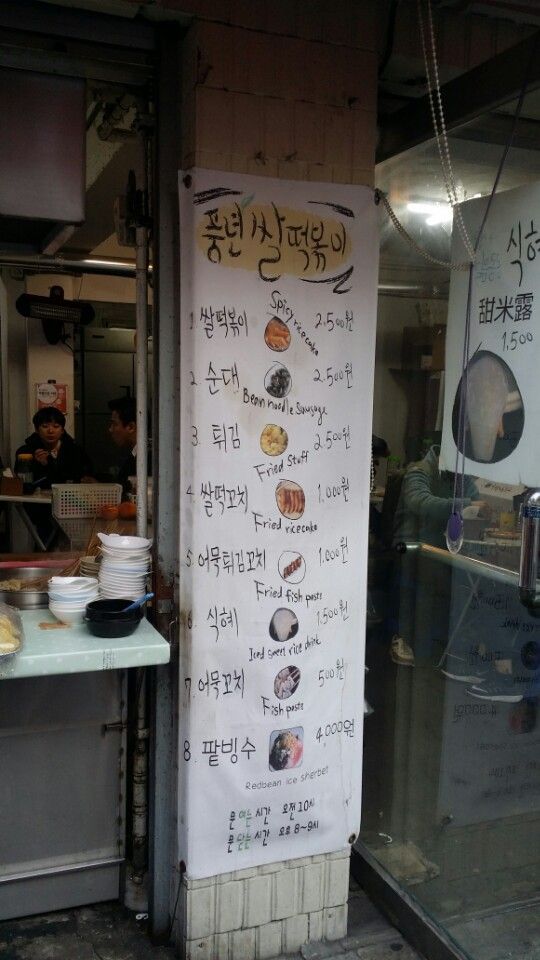 풍년 쌀떡볶이
1 쌀떡볶이 Spicy rice cake 2,500원
2. 순대 2,500원
Bean noodle Sausage
3. 튀김 2,500원
Fried Stuff
4. 쌀떡꼬치 1,000원
Fried rice cake
5. 어묵튀김꼬치 1,000원
Fried fish paste
6. 식혜 1,500원
Iced sweet rice drink
7. 어묵꼬치 500원
Fish paste
8. 팥빙수 4,000원
Redbean ice sherbet
문 여는 시간 오전 10시
문 닫는 시간 오후 8~9시
식혜
甜米露
1,500